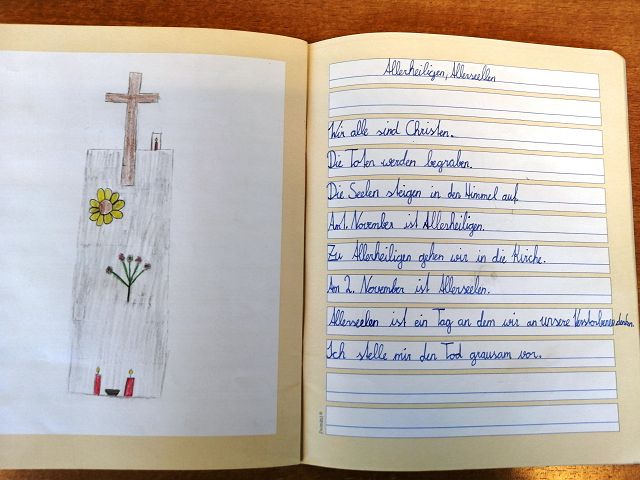 Allerheiligen, Allerseelen
Wir alle sind Christen.
Die Toten werden begraben.
Die Seelen steigen in den Himmel auf.
Am 1. November ist Allerheiligen.
Zu Allerheiligen gehen wir in die Kirche.
Am 2. November ist Allerseelen.
Allerseelen ist ein Tag an dem wir an unsere Verstorbenen denken.
Ich stelle mir den Tod grausam vor.